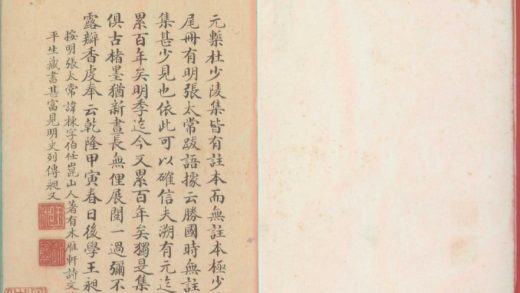 元槧杜少陵集皆有註本而無註本極少
尾冊有明張太常跋語據云勝國時無註
集甚少見也依此可以確信夫溯有元迄
累百年矣明季迄今又累百年矣獨是集
俱古楮墨猶新晝長無俚展閱一過彌不
露瓣香皮奉云乾隆甲寅春日後學王昶
按明張太常諱棟字伯任崑山人著有木雁軒詩文
平生藏書集富見明史列傳昶又